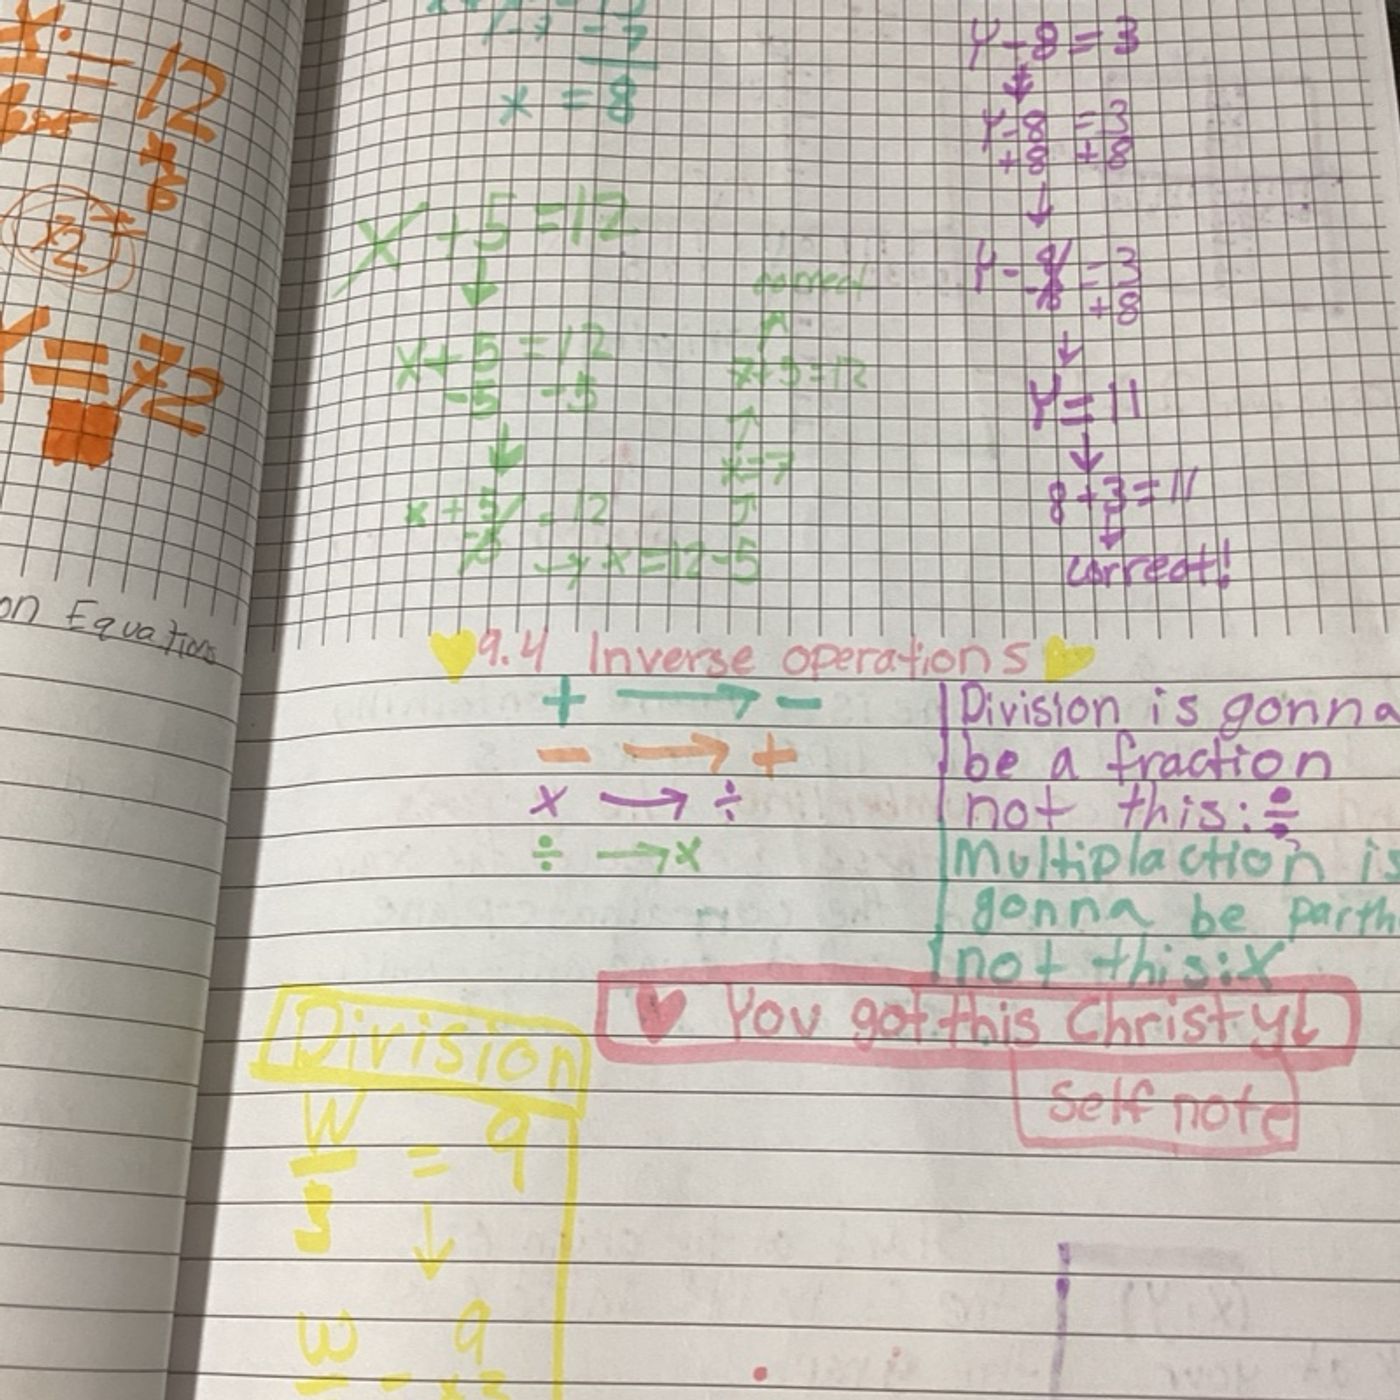 x = 12
72
Y = 72
on Equations
x = 8
X + 5 = 12
x + 5 = 12
-5 -5
x + 5 = 12
→ x = 12-5
x=7
correct
Y-8=3
Y-8 =3
+8 +8
Y-8 =3
+8
Y=11
8+3=11
correct!
9.4 Inverse operations
+ → -
- → +
x → ÷
÷ → x
Division is gonna
be a fraction
not this: ÷
Multiplaction is
gonna be parth
not this: X
♥ You got this Christy!
Self note
Division
W
= 9
3
W 9